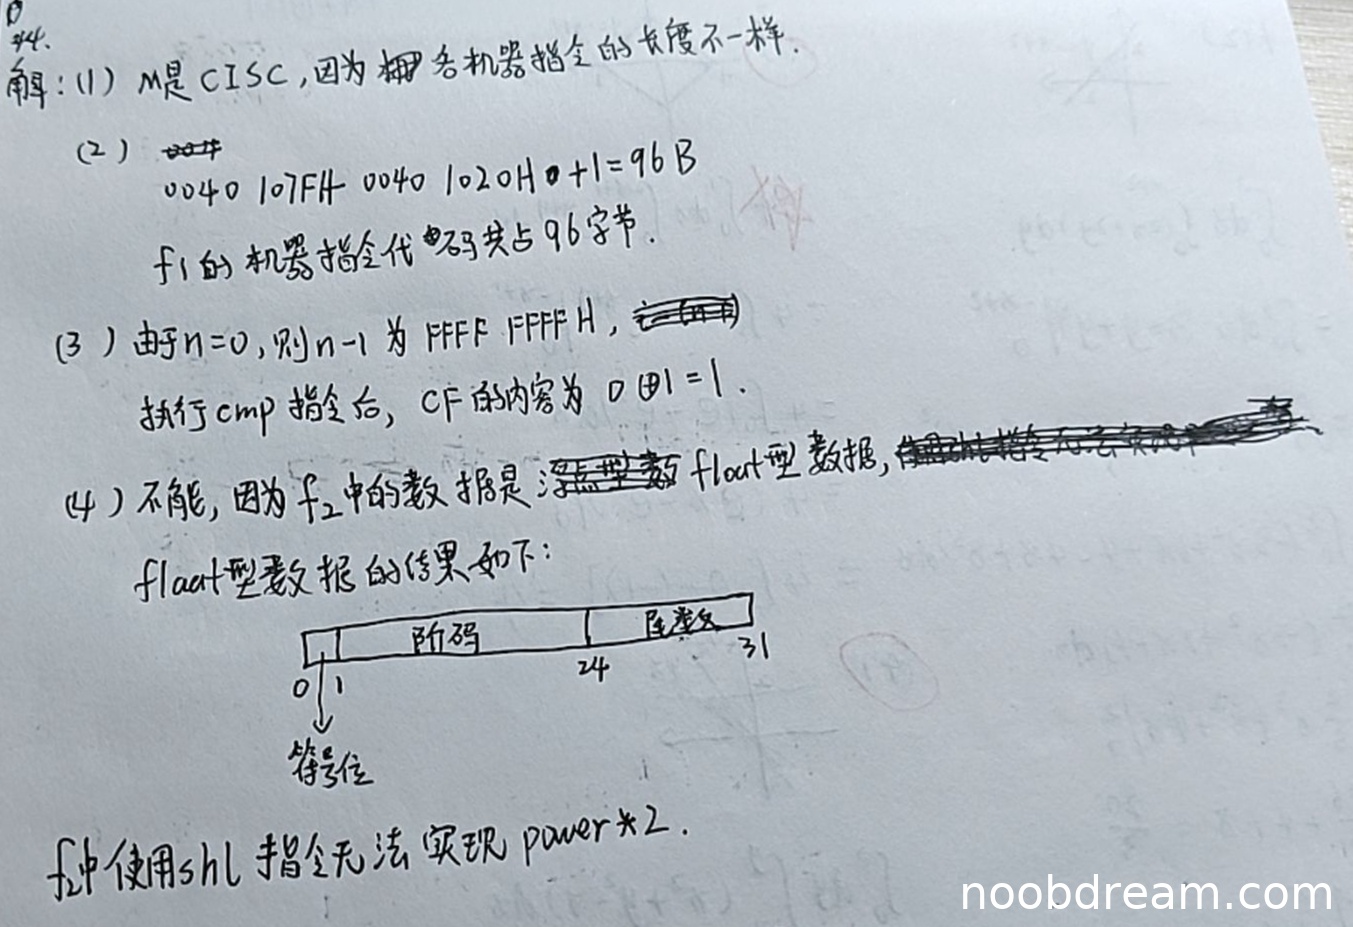 44.
解:(1) M是CISC,因为各机器指令的长度不一样.
(2)
0040 107FH - 0040 1020H + 1 = 96 B
f1的机器指令代码共占96字节.
(3) 由于n=0,则n-1为FFFF FFFFH,
执行cmp指令后, CF的内容为 0⊕1=1.
(4) 不能,因为f2中的数据是float型数据,
float型数据的结果如下:
阶码 尾数
0 1 24 31
符号位
f2中使用shl指令无法实现power*2.
noobdream.com